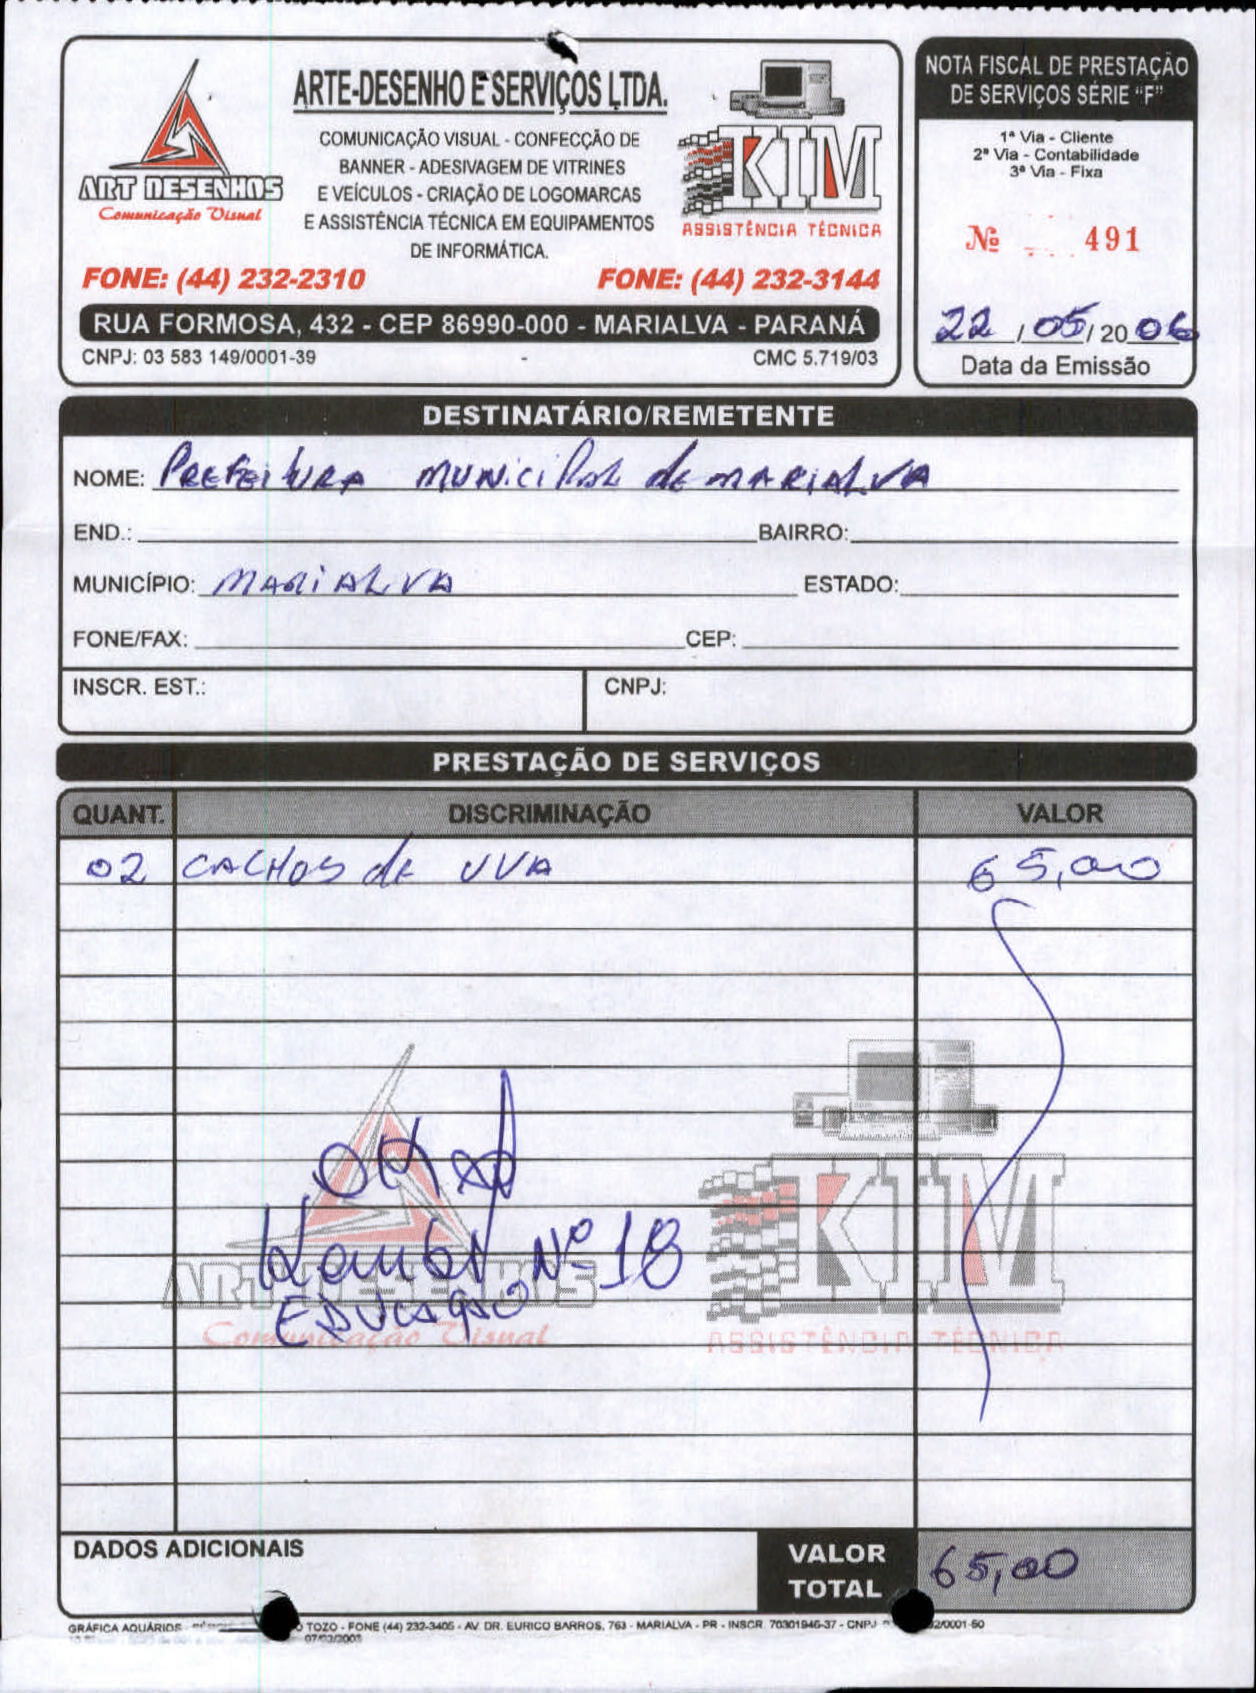 ARTE-DESENHO E SERVIÇOS LTDA.
COMUNICAÇÃO VISUAL - CONFECÇÃO DE
BANNER - ADESIVAGEM DE VITRINES
E VEÍCULOS - CRIAÇÃO DE LOGOMARCAS
E ASSISTÊNCIA TÉCNICA EM EQUIPAMENTOS
DE INFORMÁTICA.
ART DESENHOS
Comunicação Visual
KIM
ASSISTÊNCIA TÉCNICA
FONE: (44) 232-2310 FONE: (44) 232-3144
RUA FORMOSA, 432 - CEP 86990-000 - MARIALVA - PARANÁ
CNPJ: 03 583 149/0001-39 CMC 5.719/03
NOTA FISCAL DE PRESTAÇÃO
DE SERVIÇOS SÉRIE "F"
1ª Via - Cliente
2ª Via - Contabilidade
3ª Via - Fixa
Nº 491
22 / 05 / 20 06
Data da Emissão
DESTINATÁRIO/REMETENTE
NOME: PREFEITURA MUNICIPAL de MARIALVA
END.: BAIRRO:
MUNICÍPIO: MARIALVA ESTADO:
FONE/FAX: CEP:
INSCR. EST.: CNPJ:
PRESTAÇÃO DE SERVIÇOS
QUANT. DISCRIMINAÇÃO VALOR
02 CACHOS de UVA 65,00
Nº 18
EDUCAÇÃO
ART DESENHOS
Comunicação Visual
KIM
ASSISTÊNCIA TÉCNICA
DADOS ADICIONAIS
VALOR
TOTAL 65,00
GRÁFICA AQUÁRIOS TOZO - FONE (44) 232-3405 - AV. DR. EURICO BARROS, 763 - MARIALVA - PR - INSCR. 70301946-37 - CNPJ /0001-50
07/02/2003